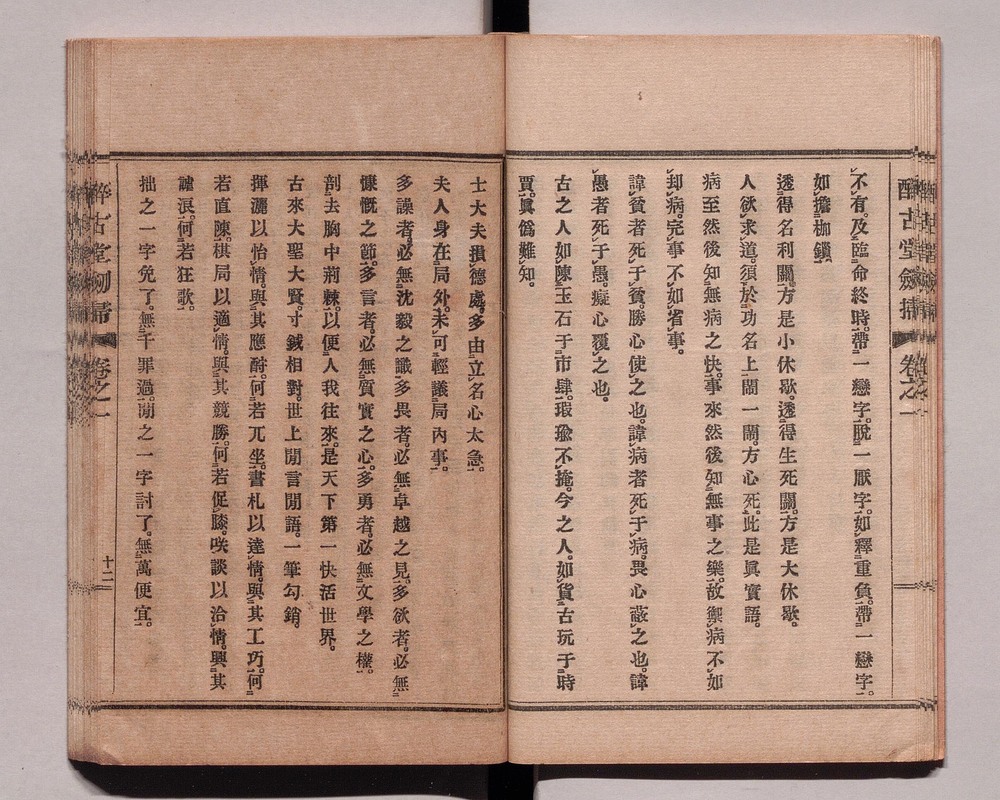 醉古堂劍掃 卷之一
不有。及臨命終時。帶一戀字。脫一厭字。如釋重負。帶一戀字。
如擔枷鎖。
透得名利關。方是小休歇。透得生死關。方是大休歇。
人欲求道。須於功名上閙一閙。方心死。此是眞實語。
病至然後知無病之快。事來然後知無事之樂。故禦病不如
却病。完事不如省事。
諱貧者死于貧。勝心使之也。諱病者死于病。畏心蔽之也。諱
愚者死于愚。癡心覆之也。
古之人如陳玉石于市肆。瑕瑜不掩。今之人。如貨古玩于時
賈。眞僞難知。
士大夫損德處。多由立名心太急。
夫人身在局外。未可輕議局內事。
多譟者。必無沈毅之識。多畏者。必無卓越之見。多欲者。必無
慷慨之節。多言者。必無質實之心。多勇者。必無文學之權。
剖去胸中荊棘。以便人我往來。是天下第一快活世界。
古來大聖大賢。寸鍼相對。世上閒言閒語。一筆勾銷。
揮灑以怡情。與其應酬。何若兀坐。書札以達情。與其工巧。何
若直陳。棋局以適情。與其競勝。何若促膝。咲談以洽情。興其
謔浪。何若狂歌。
拙之一字免了。無千罪過。閒之一字討了。無萬便宜。
醉古堂劍掃 卷之一 十二